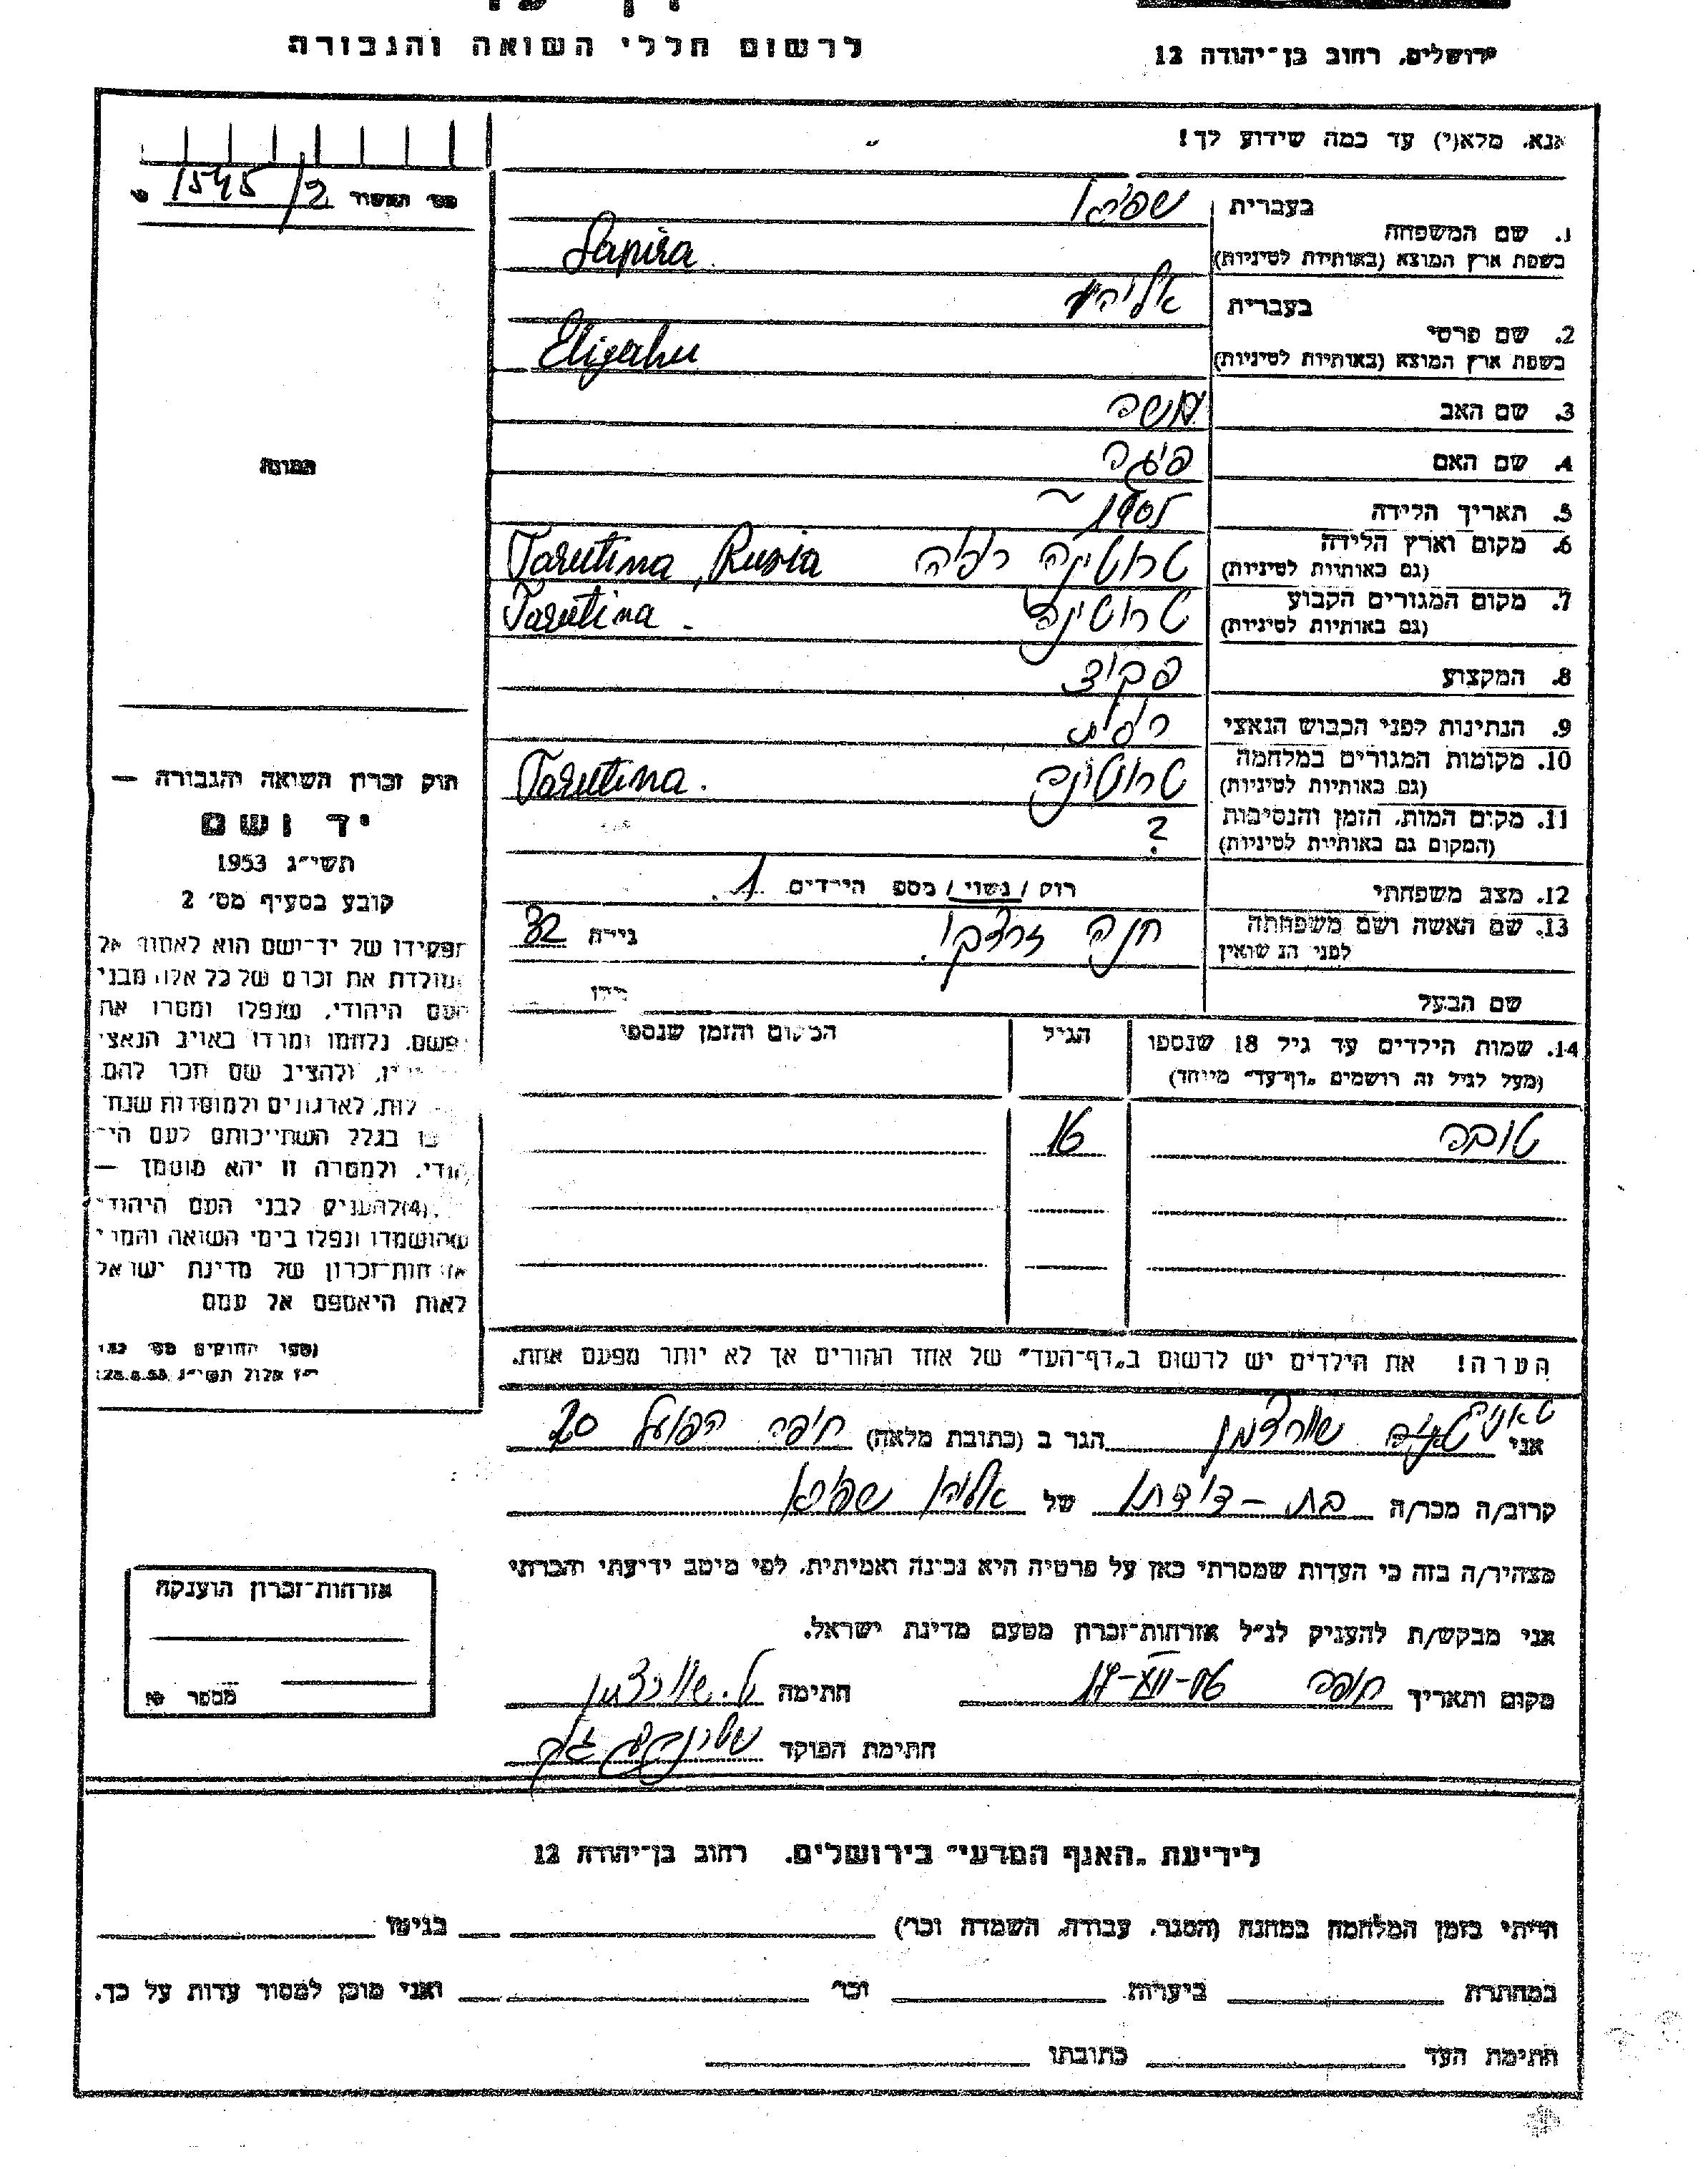 דף עד
לרשום חללי השואה והגבורה
ירושלים, רחוב בן־יהודה 12
אנא, מלא(י) עד כמה שידוע לך!
1545/2
בעברית שפירא
1. שם המשפחה
בשפת ארץ המוצא (באותיות לטיניות) Sapira
בעברית אליהו
2. שם פרטי
בשפת ארץ המוצא (באותיות לטיניות) Eligahu
3. שם האב משה
4. שם האם פיגה
5. תאריך הלידה ~1905
6. מקום וארץ הלידה
(גם באותיות לטיניות) טרוטינה רוסיה Tarutina, Rusia
7. מקום המגורים הקבוע
(גם באותיות לטיניות) טרוטינה Tarutina
8. המקצוע פקיד
9. הנתינות לפני הכבוש הנאצי רוסית
10. מקומות המגורים במלחמה
(גם באותיות לטיניות) טרוטינה Tarutina.
11. מקום המות, הזמן והנסיבות
(המקום גם באותיות לטיניות) ?
12. מצב משפחתי רוק / נשוי / מספ הילדים 1.
13. שם האשה ושם משפחתה
לפני הנשואין חנה גילה 32
שם הבעל גילו
14. שמות הילדים עד גיל 18 שנספו הגיל המקום והזמן שנספו
(מעל לגיל זה רושמים "דף־עד" מיוחד)
טובה 16
הערה! את הילדים יש לרשום ב"דף־העד" של אחד ההורים אך לא יותר מפעם אחת.
תמונה
חוק זכרון השואה והגבורה —
יד ושם
תשי״ג 1953
קובע בסעיף מס׳ 2
תפקידו של יד־ושם הוא לאסוף אל
המולדת את זכרם של כל אלה מבני
העם היהודי, שנפלו ומסרו את
נפשם, נלחמו ומרדו באויב הנאצי
ולהציב שם וזכר להם,
לקהילות, לארגונים ולמוסדות שנח־
רבו בגלל השתייכותם לעם היה־
הודי, ולמטרה זו יהא מוסמך —
(4) להעניק לבני העם היהודי
שהושמדו ונפלו בימי השואה והמרי
אזרחות־זכרון של מדינת ישראל
לאות היאספם אל עמם
אני שורצמן הגר ב (כתובת מלאה) חיפה הפועל 20
קרוב/ה מכר/ה בת-דודתו של אליהו שפירא
מצהיר/ה בזה כי העדות שמסרתי כאן על פרטיה היא נכונה ואמיתית, לפי מיטב ידיעתי והכרתי
אני מבקש/ת להעניק לנ״ל אזרחות־זכרון מטעם מדינת ישראל.
מקום ותאריך חיפה 17-XII-56 חתימה שורצמן
חתימת הפוקד
אזרחות־זכרון הוענקה
מספר
לידיעת "האגף המדעי" בירושלים, רחוב בן־יהודה 12
הייתי בזמן המלחמה במחנה (הסגר, עבודה, השמדה וכו׳) בגיטו
במחתרת ביערות וכו׳ ואני מוכן למסור עדות על כך.
חתימת העד כתובתו